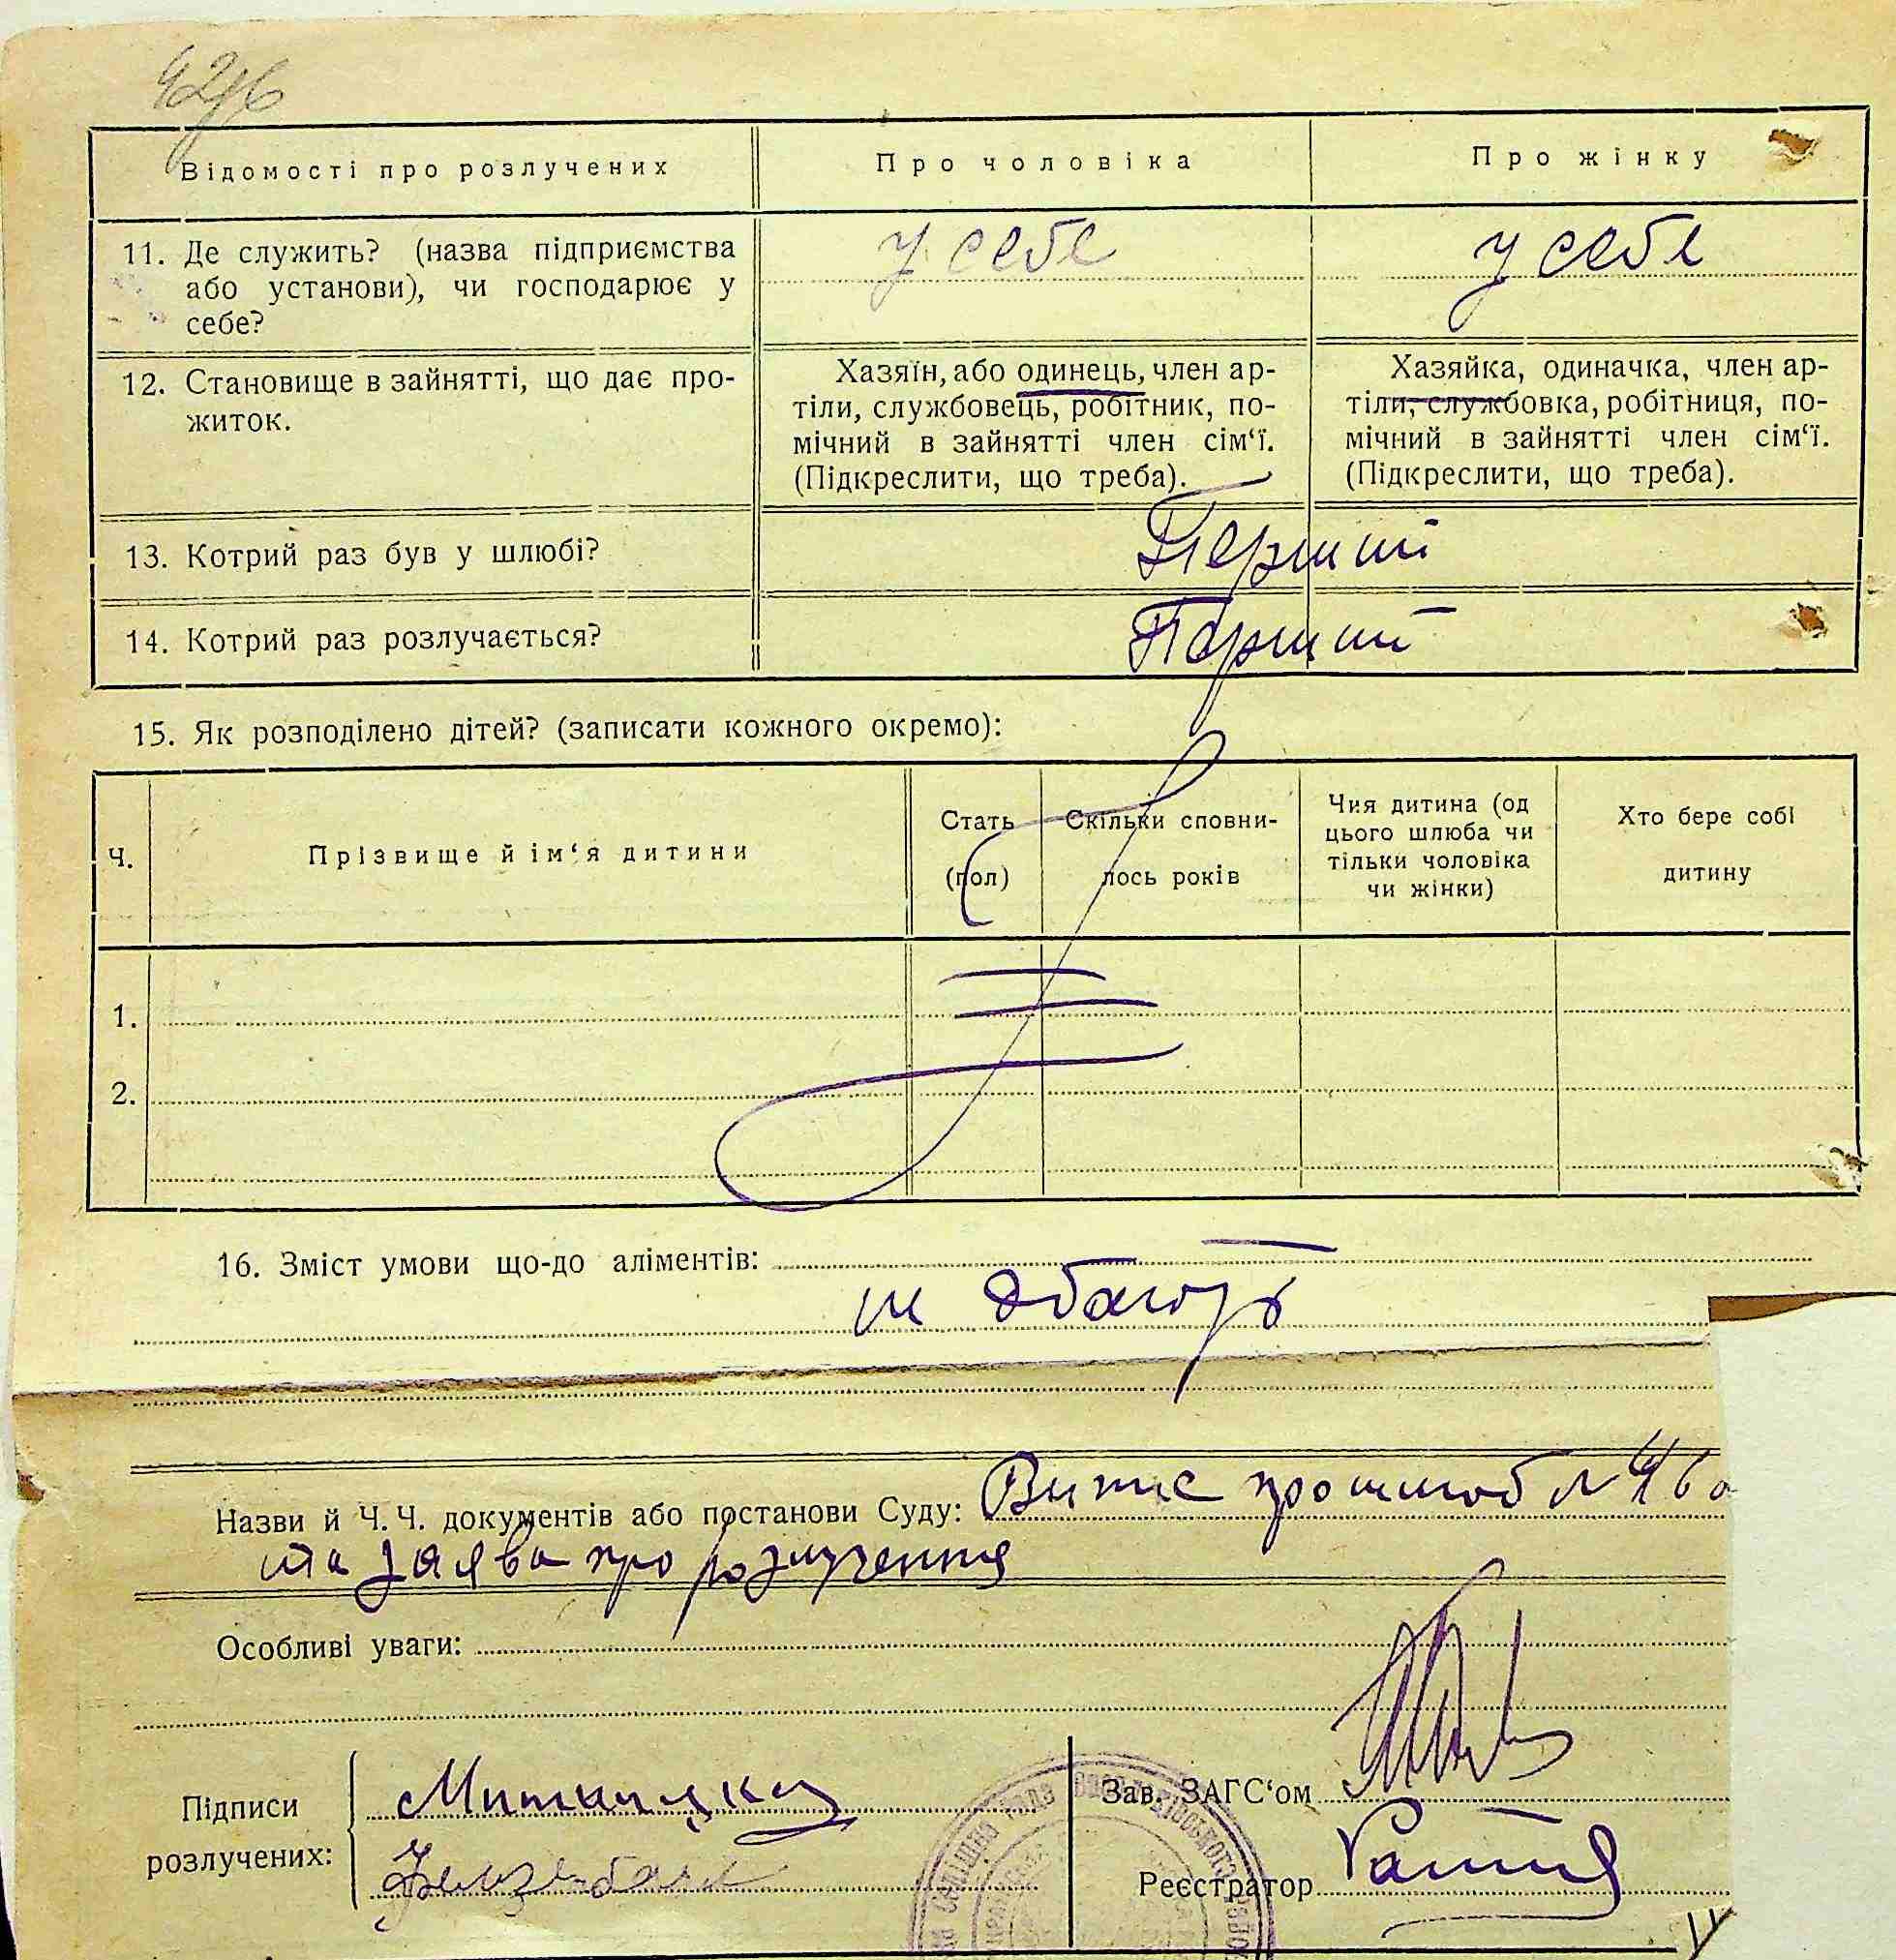 Відомості про розлучених
Про чоловіка
Про жінку
11. Де служить? (назва підприємства
або установи), чи господарює у
себе?
у себе
у себе
12. Становище в зайнятті, що дає про-
житок.
Хазяїн, або одинець, член ар-
тіли, службовець, робітник, по-
мічний в зайнятті член сім'ї.
(Підкреслити, що треба).
Хазяйка, одиначка, член ар-
тіли, службовка, робітниця, по-
мічний в зайнятті член сім'ї.
(Підкреслити, що треба).
13. Котрий раз був у шлюбі?
Перший
14. Котрий раз розлучається?
Перший
15. Як розподілено дітей? (записати кожного окремо):
Ч.
Прізвище й ім'я дитини
Стать
(пол)
Скільки сповни-
лось років
Чия дитина (од
цього шлюба чи
тільки чоловіка
чи жінки)
Хто бере собі
дитину
1.
2.
16. Зміст умови що-до аліментів:
Назви й Ч. Ч. документів або постанови Суду: Витяг про шлюб №
та заява про розлучення
Особливі уваги:
Підписи
розлучених:
Зав. ЗАГС'ом
Реєстратор